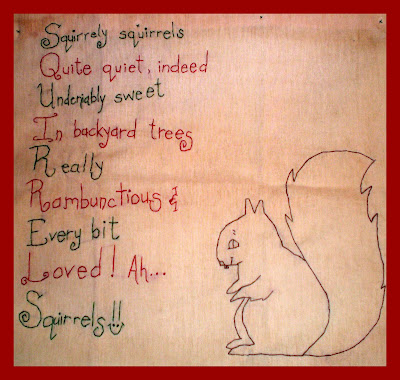 Squirrely squirrels
Quite quiet, indeed
Undeniably sweet
In backyard trees
Really
Rambunctious &
Every bit
Loved! Ah...
Squirrels!!